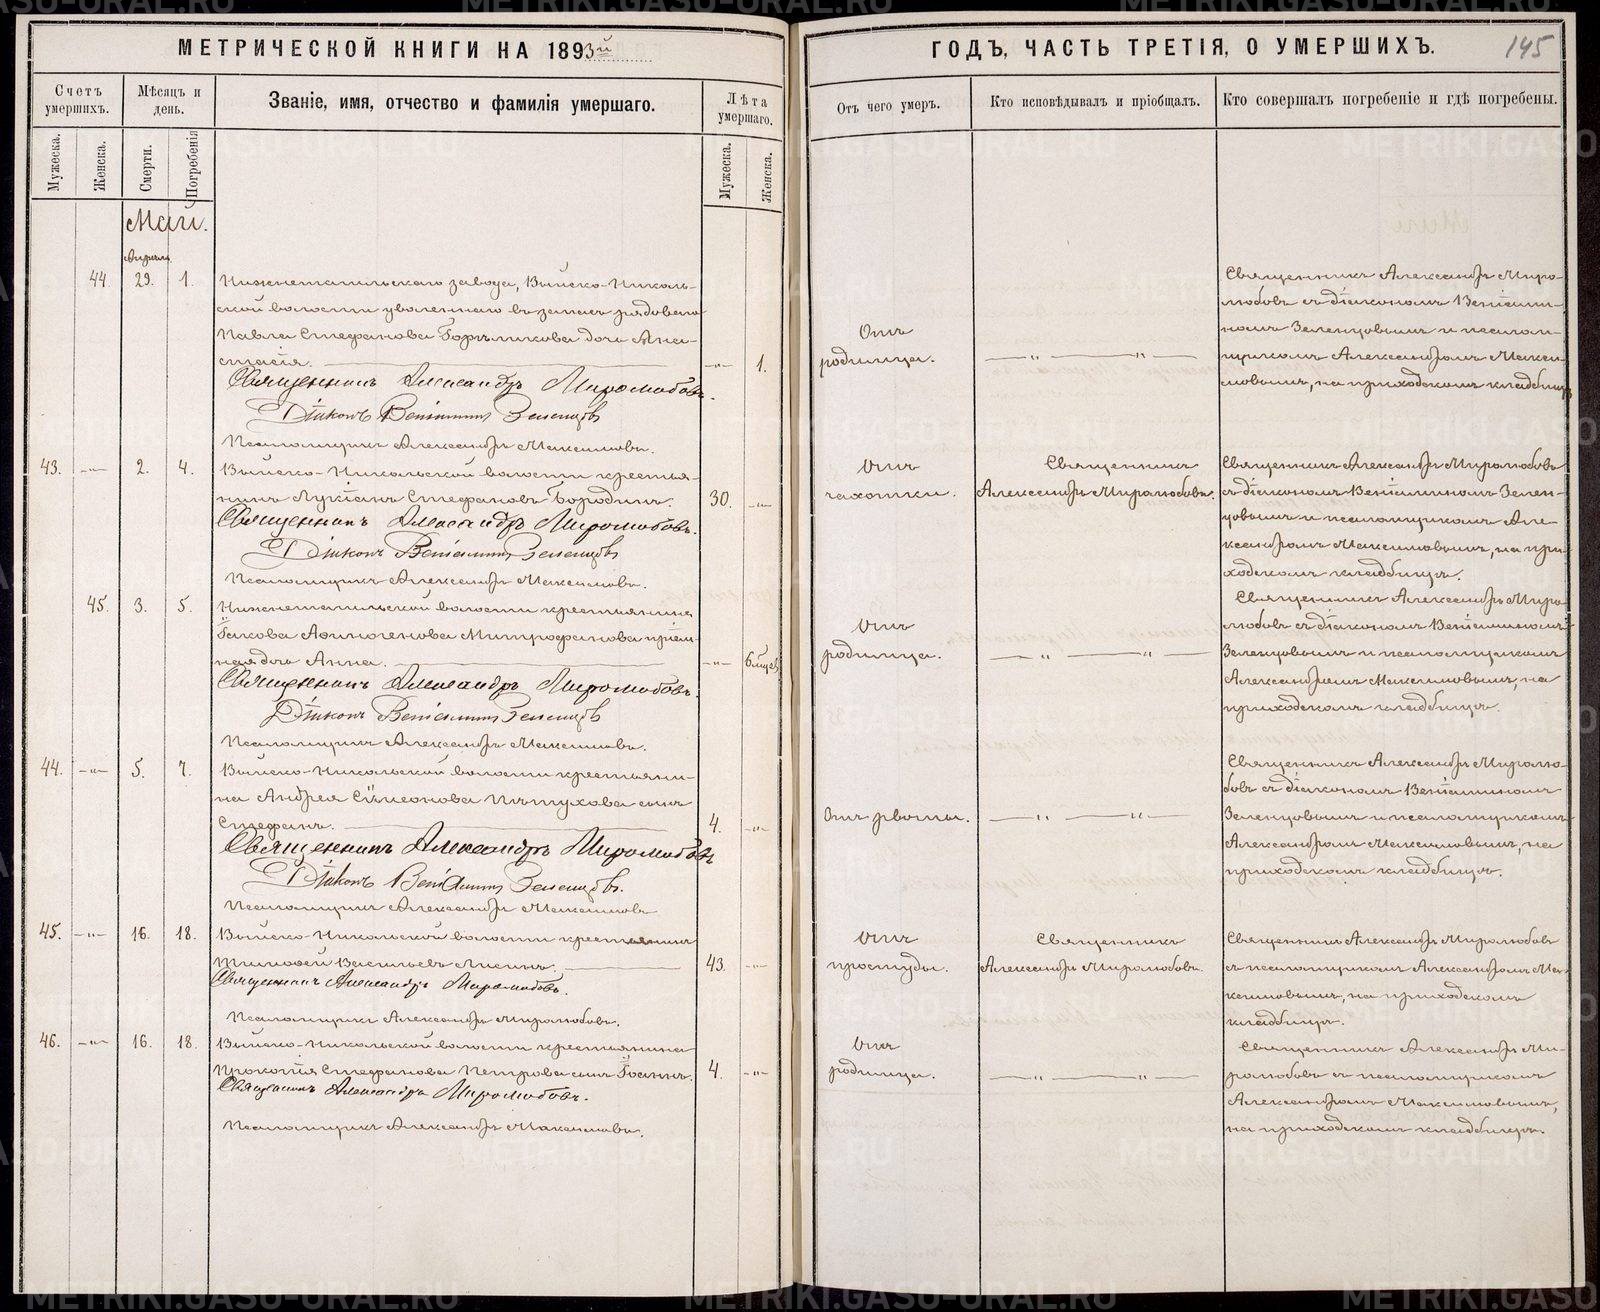 МЕТРИЧЕСКОЙ КНИГИ НА 1893й
Счетъ умершихъ.
Мѣсяцъ и день.
Званіе, имя, отчество и фамилія умершаго.
Лѣта умершаго.
Мужеска.
Женска.
Смерти.
Погребенія
Мужеска.
Женска.
Май.
Апрѣля
44. 29. 1. Нижнетагильскаго завода, Выйско-Николь-
ской волости уволеннаго въ запасъ рядоваго
Павла Стефанова Горѣликова дочь Ана-
стасія. —"— 1.
Священникъ Александръ Миролюбовъ.
Діаконъ Веніаминъ Зеленцовъ
Псаломщикъ Александръ Максимовъ.
43. —"— 2. 4. Выйско-Никольской волости крестья-
нинъ Лукіанъ Стефановъ Бородинъ. 30. —"—
Священникъ Александръ Миролюбовъ.
Діаконъ Веніаминъ Зеленцовъ
Псаломщикъ Александръ Максимовъ.
45. 3. 5. Нижнетагильской волости крестьянина
Іакова Афиногенова Митрофанова пріем-
ная дочь Анна. —"— 6 мцев
Священникъ Александръ Миролюбовъ.
Діаконъ Веніаминъ Зеленцовъ
Псаломщикъ Александръ Максимовъ.
44. —"— 5. 7. Выйско-Никольской волости крестьяни-
на Андрея Сѵмеонова Пѣтухова сынъ
Стефанъ. 4. —"—
Священникъ Александръ Миролюбовъ
Діаконъ Веніаминъ Зеленцовъ.
Псаломщикъ Александръ Максимовъ
45. —"— 16. 18. Выйско-Никольской волости крестьянинъ
Тимофей Васильевъ 43. —"—
Священникъ Александръ Миролюбовъ.
Псаломщикъ Александръ Миролюбовъ.
46. —"— 16. 18. Выйско-Никольской волости крестьянина
Прокопія Стефанова Петрова сынъ Іоаннъ. 4. —"—
Священникъ Александръ Миролюбовъ.
Псаломщикъ Александръ Максимовъ.
ГОДЪ, ЧАСТЬ ТРЕТІЯ, О УМЕРШИХЪ.
145
Отъ чего умеръ.
Кто исповѣдывалъ и пріобщалъ.
Кто совершалъ погребеніе и гдѣ погребены.
Отъ
родимца.
—"— —"—
Священникъ Александръ Миро-
любовъ съ діакономъ Веніами-
номъ Зеленцовымъ и псалом-
щикомъ Александромъ Макси-
мовымъ, на приходскомъ кладбищѣ
Отъ
чахотки.
Священникъ
Александръ Миролюбовъ.
Священникъ Александръ Миролюбовъ
съ діакономъ Веніаминомъ Зелен-
цовымъ и псаломщикомъ Але-
ксандромъ Максимовымъ, на при-
ходскомъ кладбищѣ.
Отъ
родимца.
—"— —"—
Священникъ Александръ Миро-
любовъ съ діакономъ Веніаминомъ
Зеленцовымъ и псаломщикомъ
Александромъ Максимовымъ, на
приходскомъ кладбищѣ.
Отъ рвоты.
—"— —"—
Священникъ Александръ Миролю-
бовъ съ діакономъ Веніаминомъ
Зеленцовымъ и псаломщикомъ
Александромъ Максимовымъ, на
приходскомъ кладбищѣ.
Отъ
простуды.
Священникъ
Александръ Миролюбовъ.
Священникъ Александръ Миролюбовъ
съ псаломщикомъ Александромъ Ма-
ксимовымъ, на приходскомъ
кладбищѣ.
Отъ
родимца.
—"— —"—
Священникъ Александръ Ми-
ролюбовъ съ псаломщикомъ
Александромъ Максимовымъ,
на приходскомъ кладбищѣ.
METRIKI.GASO-URAL.RU